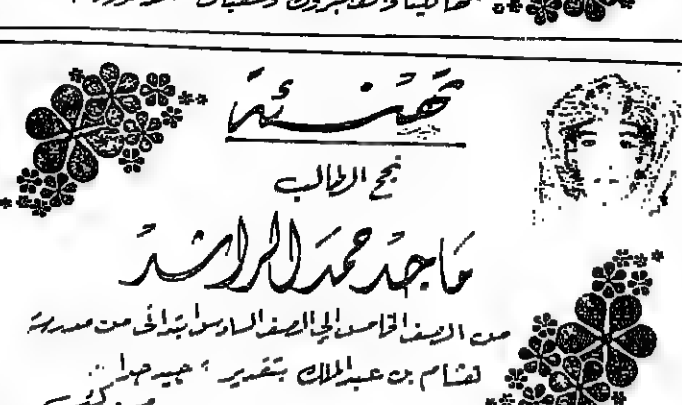 تهنئة
نجح الطالب
ماجد حمد الراشد
من الصف الخامس الى الصف السادس ابتدائى من مدرسة
هشام بن عبدالملك بتقدير : جيد جدا ..